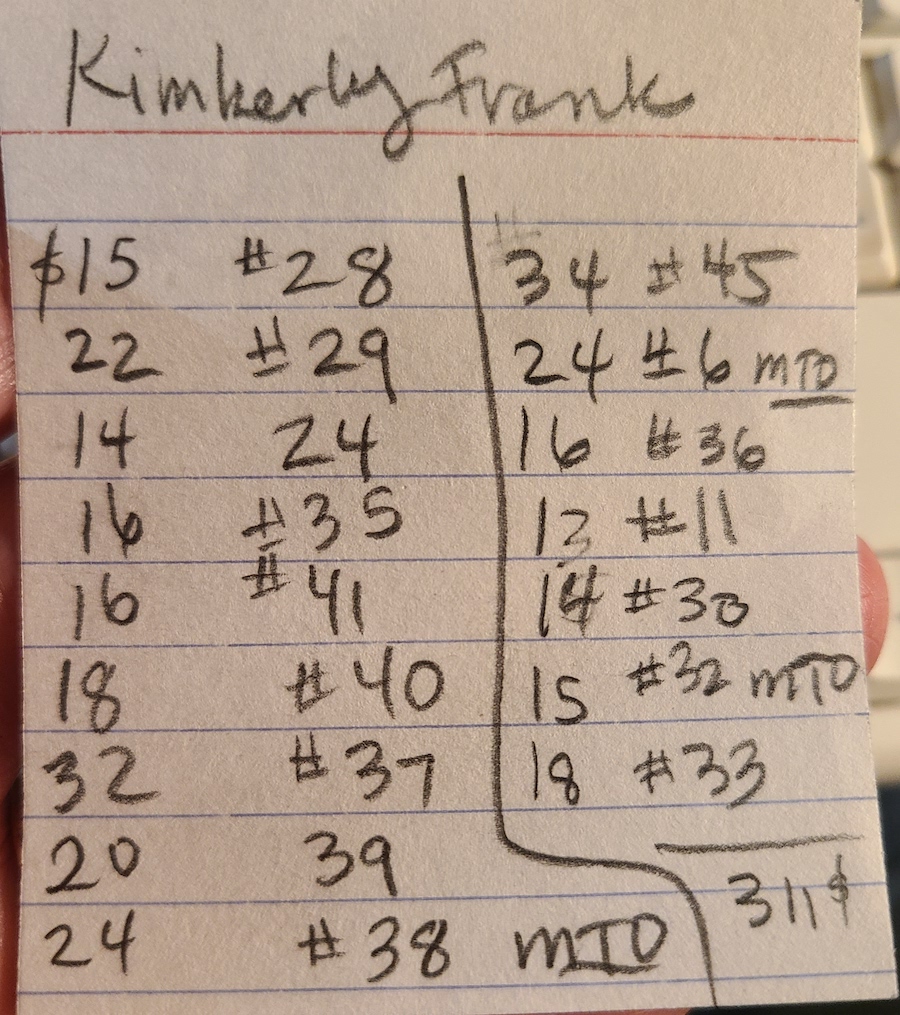 Kimberly Frank
$15 #28
22 #29
14 24
16 #35
16 #41
18 #40
32 #37
20 39
24 #38 mTO
34 #45
24 #6 mTO
16 #36
13 #11
14 #30
15 #32 mTO
18 #33
311$